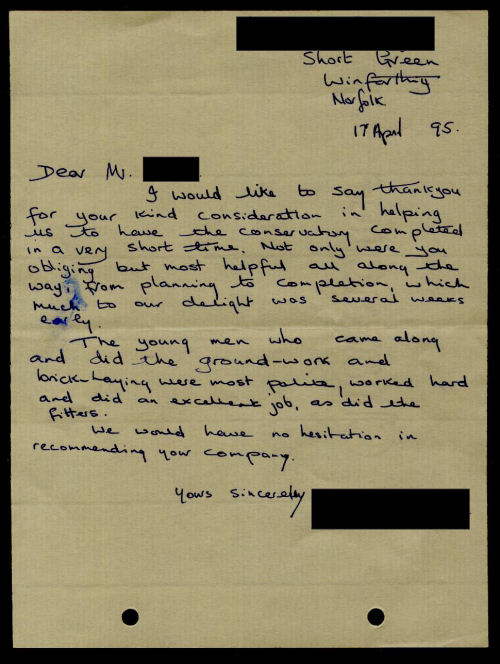 Short Green
Winfarthing
Norfolk
17 April 95.
Dear Mr.
I would like to say thankyou
for your kind consideration in helping
us to have the conservatory completed
in a very short time. Not only were you
obliging but most helpful all along the
way, from planning to completion, which
much to our delight was several weeks
early.
The young men who came along
and did the ground-work and
brick-laying were most polite, worked hard
and did an excellent job, as did the
fitters.
We would have no hesitation in
recommending your company.
Yours sincereley